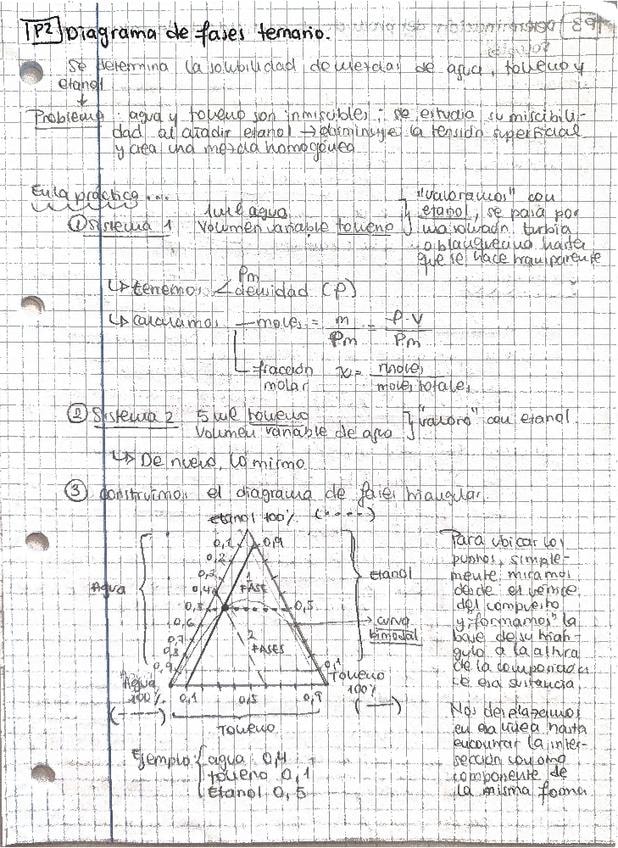 P2 Diagrama de fases ternario.
Se determina la solubilidad de mezclas de agua, tolueno y
etanol
Problema: agua y tolueno son inmiscibles; se estudia su miscibili-
dad al añadir etanol → disminuye la tensión superficial
y crea una mezcla homogénea
En la práctica...
① Sistema 1
1 ml agua
Volumen variable tolueno
"valoramos" con
etanol, se pasa por
una solución turbia
o blanquecina hasta
que se hace transparente
↳ tenemos
Pm
densidad (ρ)
↳ calculamos — moles = m/Pm = ρ·V/Pm
fracción molar x = moles/moles totales
② Sistema 2
5 ml tolueno
Volumen variable de agua
"valoro" con etanol
↳ De nuevo, lo mismo
③ Construimos el diagrama de fases triangular.
etanol 100% (----)
0,1
0,9
0,2
0,3
0,4
0,5
0,6
0,7
0,8
0,9
Agua
1
FASE
0,5
2
FASES
0,1
Etanol
curva
bimodal
Agua
100%
(----)
0,1
0,5
0,9
Tolueno
100%
(----)
Tolueno
Ejemplo
agua 0,4
tolueno 0,1
Etanol 0,5
Para ubicar los
puntos, simple-
mente miramos
desde el vértice
del compuesto
y "formamos" la
base de su trián-
gulo a la altura
de la composición
de esa sustancia.
Nos desplazamos
en esa línea hasta
encontrar la inter-
sección con otro
componente de
la misma forma